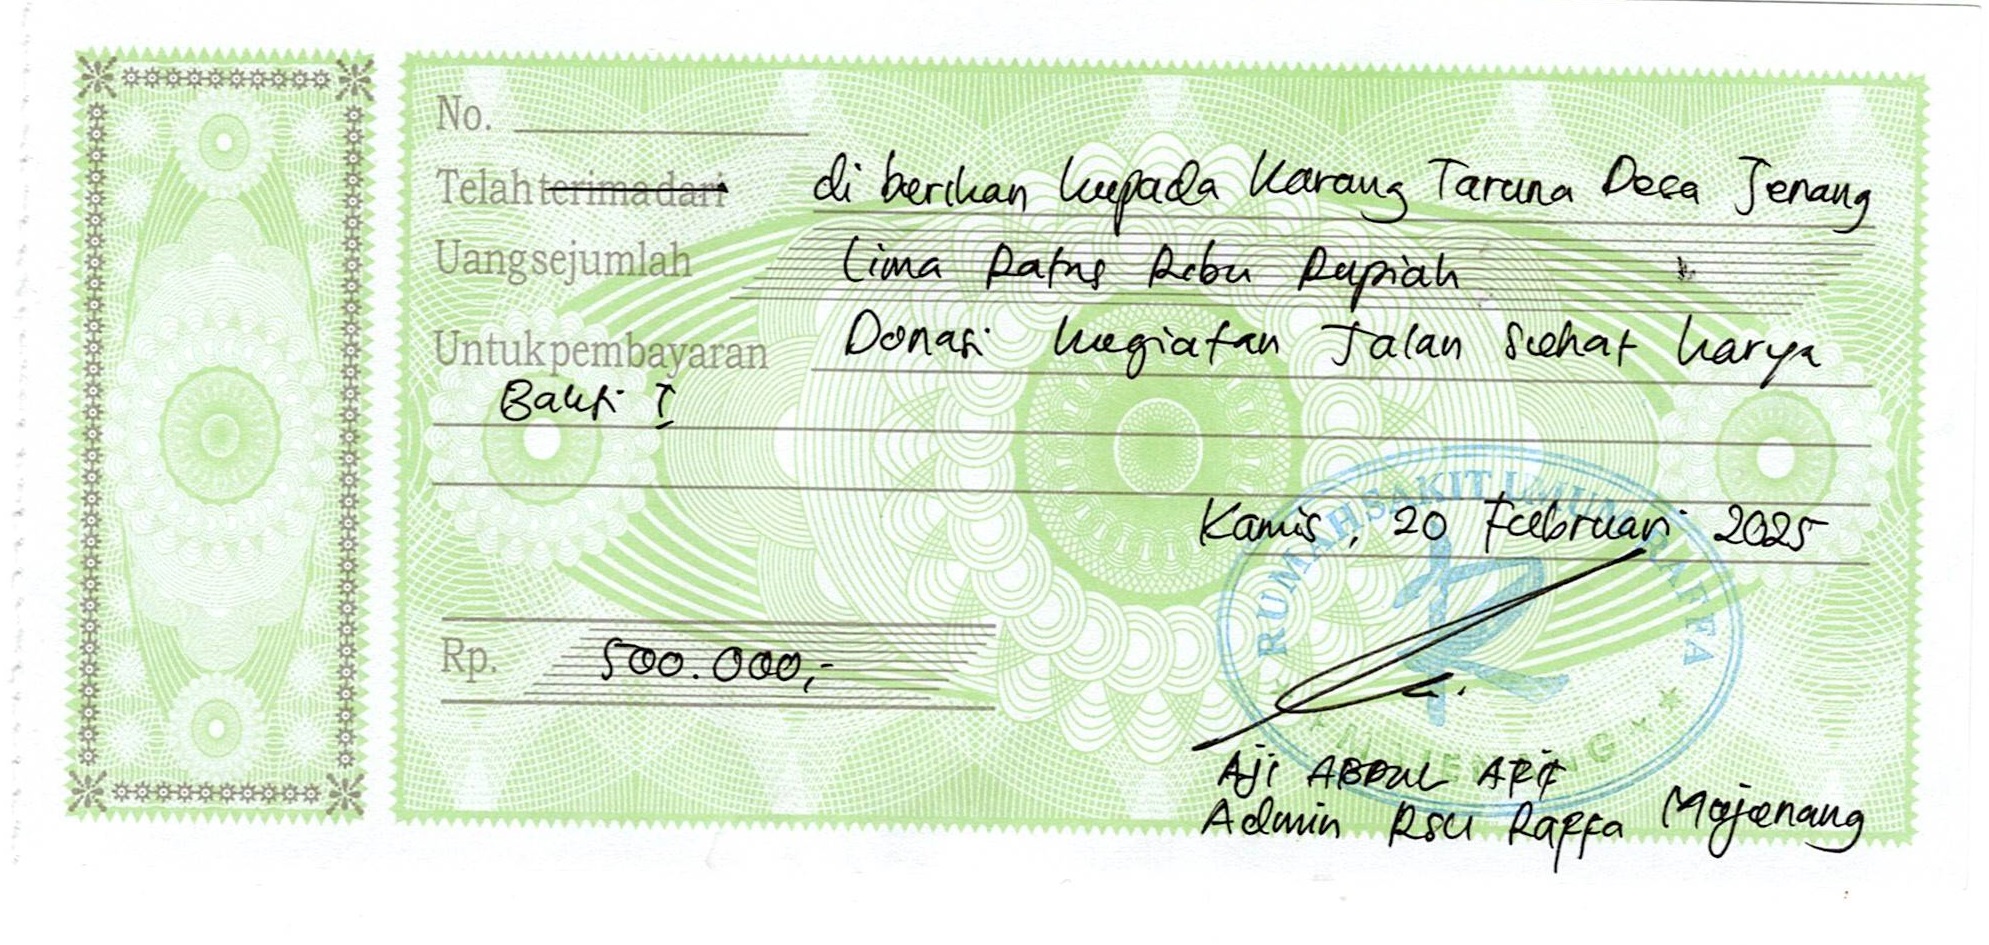 No.
Telah terima dari di berikan kepada Karang Taruna Desa Jenang
Uang sejumlah Lima Ratus Ribu Rupiah
Untuk pembayaran Donasi kegiatan Jalan Sehat Karya
Bakti I
Kamis, 20 Februari 2025
RUMAH SAKIT UMUM RAFFA
MAJENANG
Rp. 500.000,-
Aji ABDUL ARIF
Admin RSU Raffa Majenang